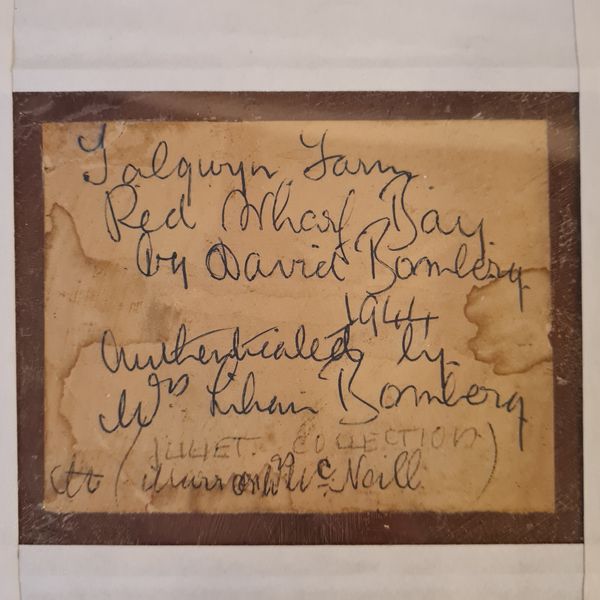 Talgwyn Farm
Red Wharf Bay
by David Bomberg
1944
Authenticated by
Mrs Lilian Bomberg
(JULIET COLLECTION)
McNeill